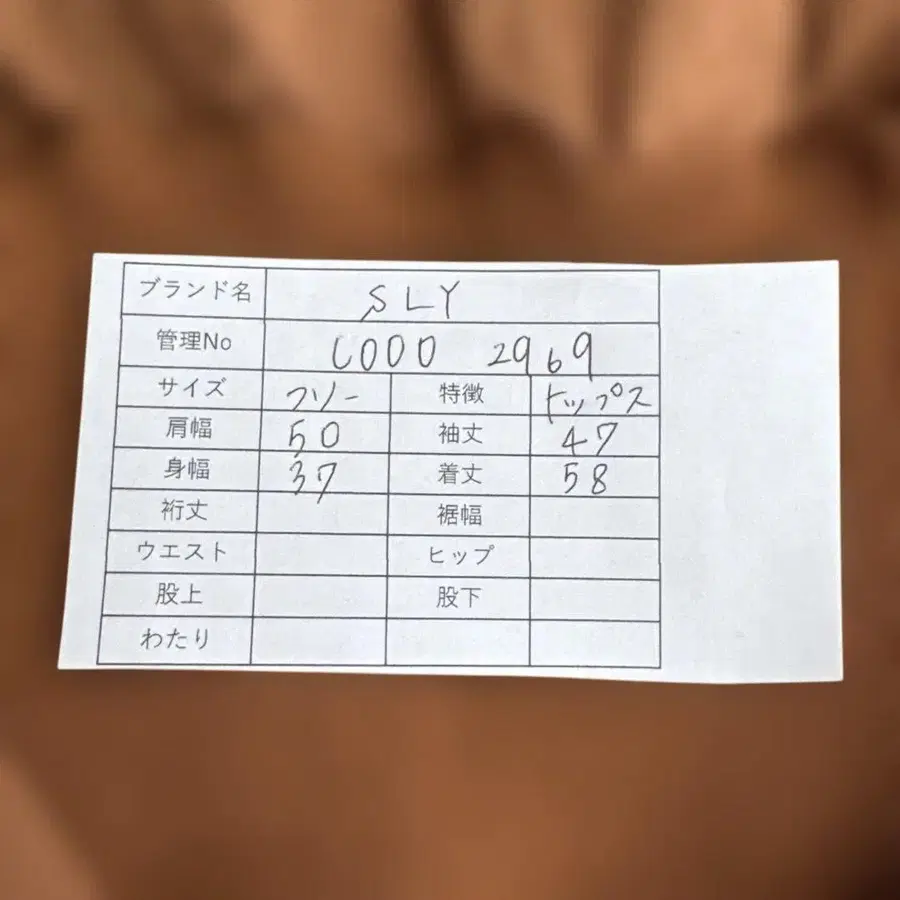 ブランド名 SLY
管理No C000 2969
サイズ フリー 特徴 トップス
肩幅 50 袖丈 47
身幅 37 着丈 58
裄丈 裾幅
ウエスト ヒップ
股上 股下
わたり